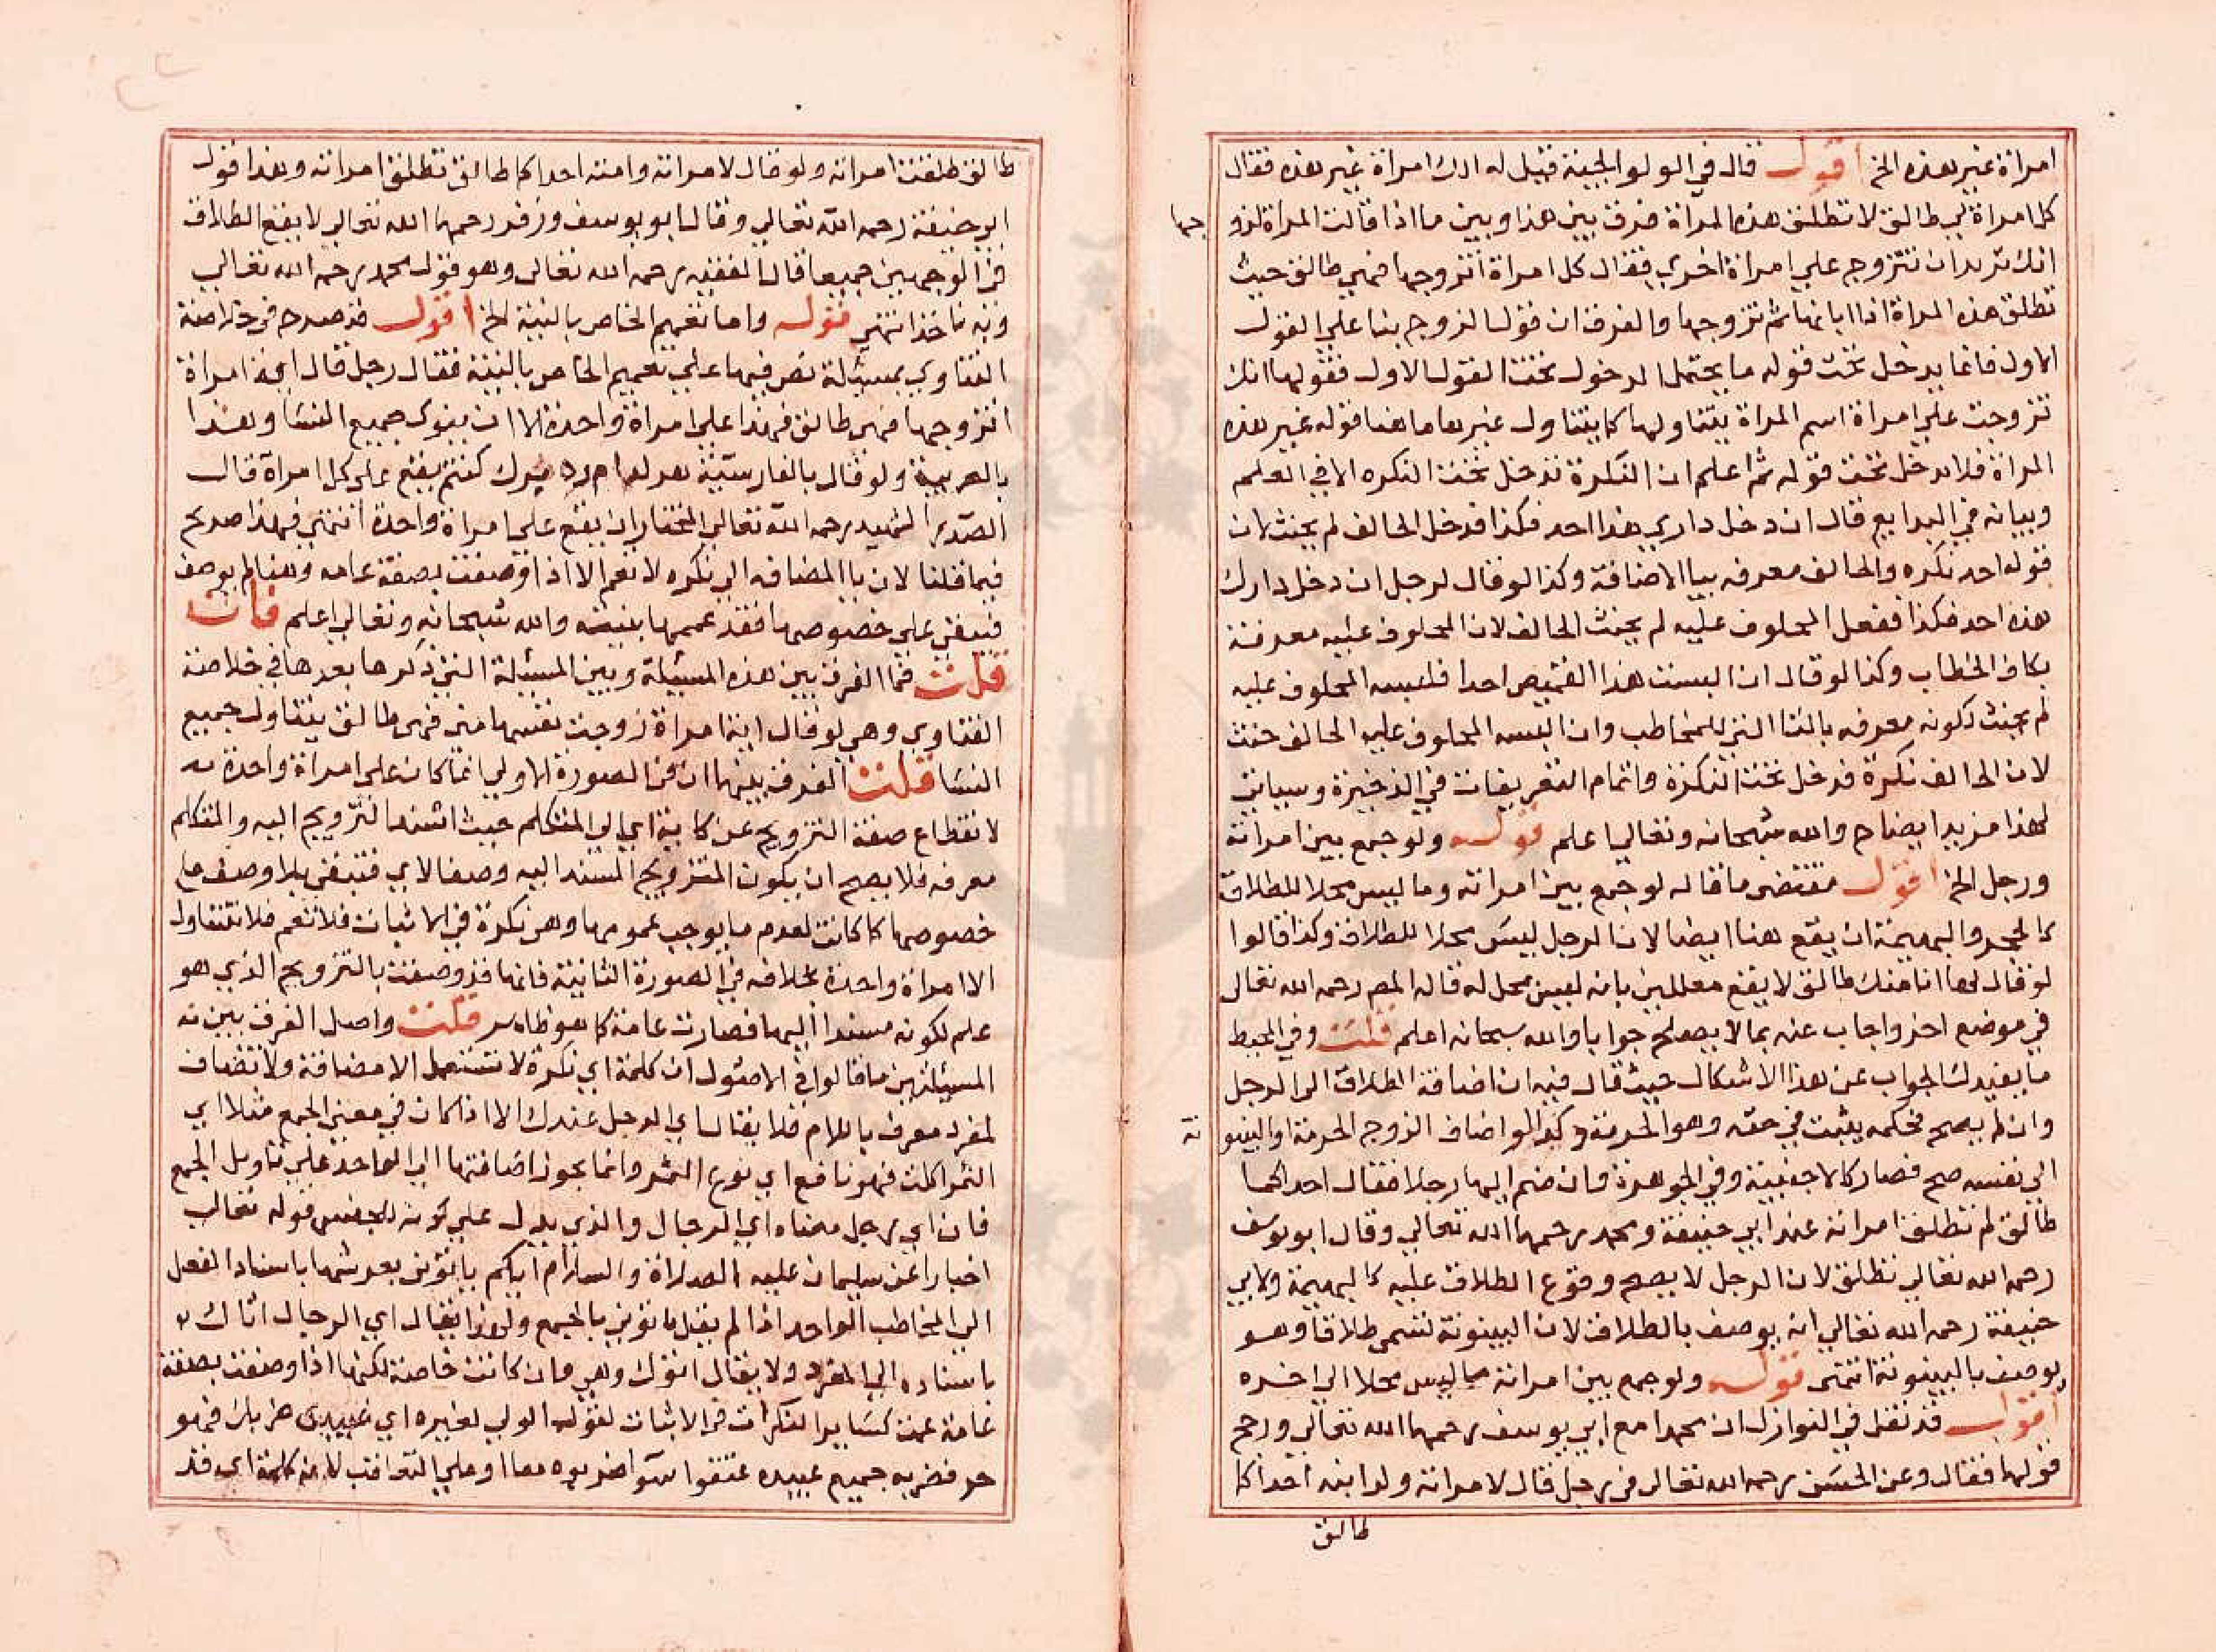 امراة غير هذه الخ اقول قال في الولوالجية قيل له ادك امراة غير هذه فقال
كل امراة لي طالق لا تطلق هذه المراة فرق بين هذا وبين ما اذا قالت المراة لزو
جها
انك تريد ان تتزوج علي امراة اخري فقال كل امراة اتزوجها فهي طالق حيث
تطلق هذه المراة اذا ابانها ثم تزوجها والفرق ان قول الزوج بنا علي القول
الاول فانما يدخل تحت قوله ما يحتمل الدخول تحت القول الاول فقولها انك
تزوجت علي امراة اسم المراة يتناولها كما يتناول غيرها ما هنا قوله غير هذه
المراة فلا تدخل تحت قوله ثم اعلم ان النكرة تدخل تحت النكره الا في العلم
وبيانه في البدايع قال ان دخل داري هذا احد فكذا فدخل الحالف لم يحنث لان
قوله احد نكره والحالف معرفه بيا الاضافة وكذا لو قال لرجل ان دخل دارك
هذه احد فكذا ففعل المحلوف عليه لم يحنث الحالف لان المحلوف عليه معرفة
بكاف الخطاب وكذا لو قال ان البست هذا القميص احدا فلبسه المحلوف عليه
لم يحنث لكونه معرفه بالتا التي للمخاطب وان البسه المحلوف عليه الحالف حنث
لان الحالف نكرة فدخل تحت النكرة واتمام التعريفات في الذخيرة وسياتي
لهذا مزيد ايضاح والله سبحانه وتعالي اعلم قوله ولو جمع بين امراته
ورجل الخ اقول مقتضي ما قاله لو جمع بين امراته وما ليس محلا للطلاق
كالحجر والبهيمة ان يقع هنا ايضا لان الرجل ليس محلا للطلاق وكذا قالوا
لو قال لها انا منك طالق لا يقع معللين بانه ليس محل له قاله المص رحمه الله تعالي
في موضع اخر واجاب عنه بما لا يصلح جوابا والله سبحانه اعلم قلت وفي المحيط
ما يفيدك الجواب عن هذا الاشكال حيث قال فيه ان اضافة الطلاق الي الرجل
وان لم يصح فحكمه يثبت في حقه وهو الحرمة وكذا لو اضاف الزوج الحرمة او البينو
نة
الي نفسه صح فصار كالاجنبية وفي الجوهرة فان ضم اليها رجلا فقال احدكما
طالق لم تطلق امراته عند ابي حنيفة ومحمد رحمهما الله تعالي وقال ابو يوسف
رحمه الله تعالي تطلق لان الرجل لا يصح وقوع الطلاق عليه كالبهيمة ولابي
حنيفة رحمه الله تعالي انه يوصف بالطلاق لان البينونة تسمي طلاقا وهو
يوصف بالبينونة انتهي قوله ولو جمع بين امراته وما ليس محلا الي اخره
اقول قد نقل في النوازل ان محمدا مع ابي يوسف رحمهما الله تعالي ورجح
قولهما فقال وعن الحسن رحمه الله تعالي في رجل قال لامراته ولدابته احداكما
طالق
طالق طلقت امراته ولو قال لامراته وامته احداكما طالق تطلق امراته وهذا قول
ابي حنيفة رحمه الله تعالي وقال ابو يوسف وزفر رحمهما الله تعالي لا يقع الطلاق
في الوجهين جميعا قال الفقيه رحمه الله تعالي وهو قول محمد رحمه الله تعالي
وبه ناخذ انتهي قوله واما تعميم الخاص بالنية الخ اقول قد صرح في خلاصة
الفتاوي بمسيلة نص فيها علي تعميم الخاص بالنية فقال رجل قال اية امراة
اتزوجها فهي طالق فهذا علي امراة واحدة الا ان ينوي جميع النسا وهذا
بالعربية ولو قال بالفارسية هر كدام زن كنم يقع علي كل امراة قال
الصدر الشهيد رحمه الله تعالي المختار ان يقع علي امراة واحدة انتهي فهذا صريح
فيما قلنا لان يا المضافه الي نكره لا تعم الا اذا وصفت بصفة عامه وهنا لم يوصف
فتبقي علي خصوصها فقد عممها بنيته والله سبحانه وتعالي اعلم فان
قلت فما الفرق بين هذه المسيلة وبين المسيلة التي ذكرها بعدها في خلاصة
الفتاوي وهي لو قال اية امراة زوجت نفسها مني فهي طالق يتناول جميع
النسا قلت الفرق بينهما ان في الصورة الاولي انما كان علي امراة واحدة
لانقطاع صفة التزويج عن كلمة اي الي المتكلم حيث اسند التزويج اليه والمتكلم
معرفه فلا يصح ان يكون التزويج المسند اليه وصفا لاي فتبقي بلا وصف علي
خصوصها كما كانت لعدم ما يوجب عمومها وهي نكرة في الاثبات فلا تعم فلا تتناول
الا امراة واحدة بخلافه في الصورة الثانية فانها قد وصفت بالتزويج الذي هو
علم لكونه مسندا اليها فصارت عامة كما هو ظاهر قلت واصل الفرق بين
المسيلتين ما قالوا في الاصول ان كلمة اي نكرة لا تستعمل الا مضافة ولا تضاف
لمفرد معرف باللام فلا يقال اي الرجل عندك الا اذا كان في معني الجمع مثلا اي
التمر اكلت فهو نافع اي نوع التمر وانما يجوز اضافتها الي الواحد علي تاويل الجمع
فان اي رجل معناه اي الرجال والذي يدل علي كونه للجنس قوله تعالي
اخبارا عن سليمان عليه الصلاة والسلام ايكم ياتيني بعرشها باسناد الفعل
الي المخاطب الواحد اذا لم يقل ياتوني بالجمع ولهذا يقال اي الرجال اتاك
باسناده الي المفرد ولا يقال اتوك وهي وان كانت خاصة لكنها اذا وصفت بصفة
عامة عمت كساير النكرات في الاثبات لقوله المولي لغيره اي عبيدي ضربك فهو
حر فضربه جميع عبيده عتقوا سوا ضربوه معا او علي التعاقب لان كلمة اي قد